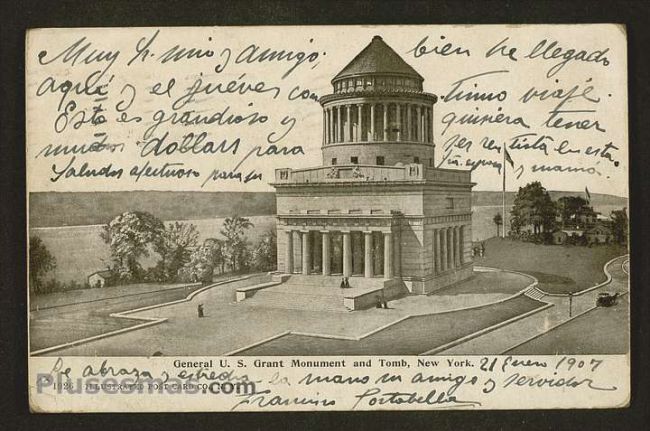 Muy Sr mio y amigo, bien he llegado
aquí y el jueves continuo viaje.
Esto es grandioso y quisiera tener
muchos dollars para ser rentista en esta.
Saludos afectuoso para su y mamá.
General U. S. Grant Monument and Tomb, New York. 21 Enero 1907
Le abraza y estrecha la mano su amigo y servidor
1926 ILLUSTRATED POST CARD CO., N. Y.
PlusComas.com
Francisco Portabella